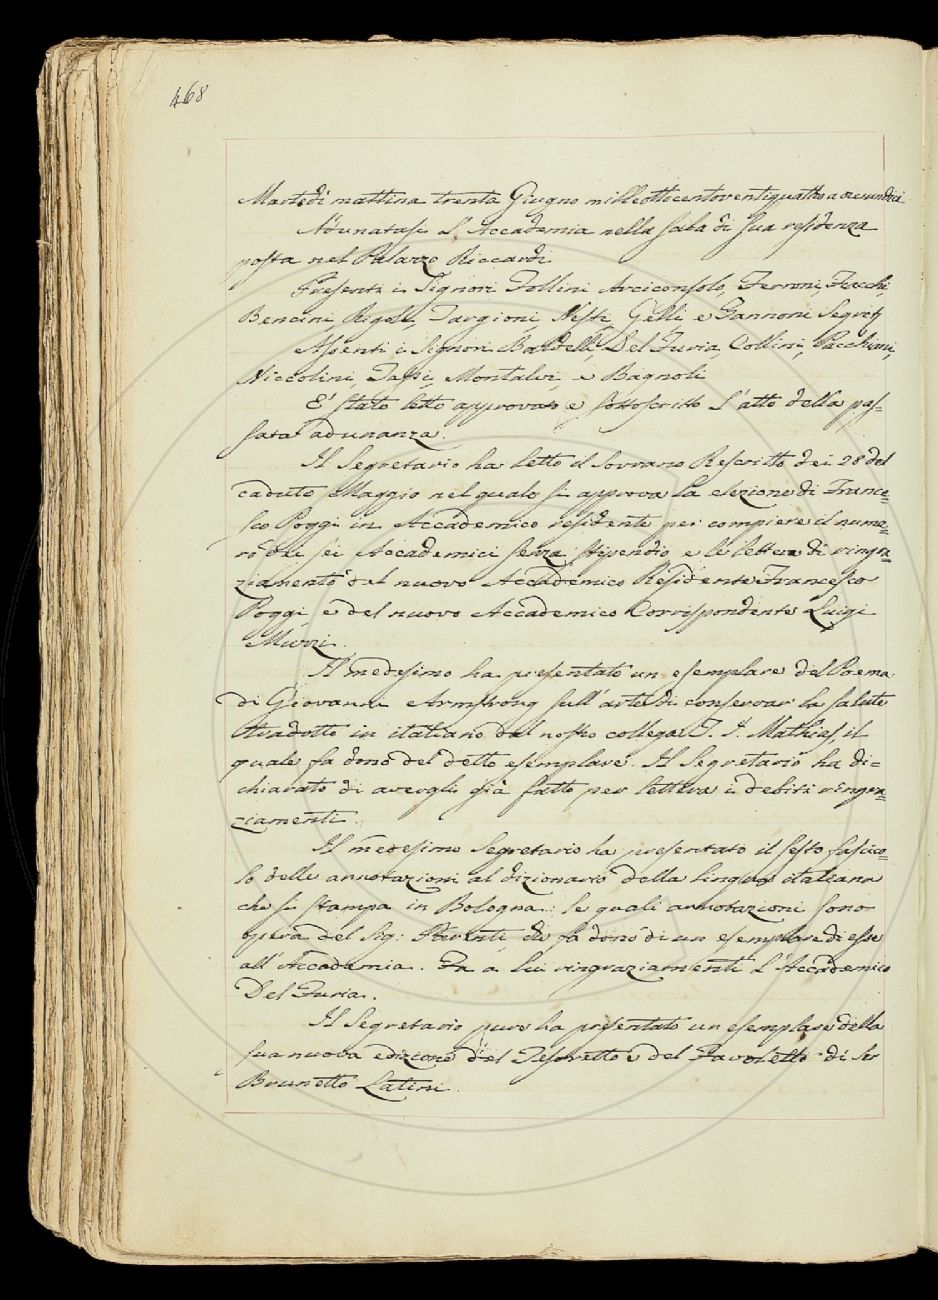 468
Martedì mattina trenta Giugno milleottocentoventiquattro a ore undici
Adunatasi l'Accademia nella sala di sua residenza
posta nel Palazzo Riccardi
Presenti i Signori Follini Arciconsolo, Ferroni, Fiacchi,
Bencini, Rigoli, Targioni, Nesti, Gelli e Zannoni Segret.
Assenti i Signori Baldelli Del Furia, Collini, Pacchiani,
Niccolini, Tassi, Montalvi, e Bagnoli
E' stato letto approvato e sottoscritto l'atto della pas=
sata adunanza.
Il Segretario ha letto il Sovrano Rescritto dei 28 del
caduto Maggio nel quale si approva la elezione di France=
sco Poggi in Accademico residente per compiere il nume=
ro dei sei Accademici senza stipendio e le lettere di ringra=
ziamento del nuovo Accademico Residente Francesco
Poggi e del nuovo Accademico Corrispondente Luigi
Muzzi.
Il medesimo ha presentato un esemplare del Poema
di Giovanni Armstrong sull'arte di conservar la salute
tradotto in italiano dal nostro collega T. I. Mathias, il
quale fa dono del detto esemplare. Il Segretario ha di=
chiarato di avergli già fatto per lettera i debiti ringra=
ziamenti.
Il medesimo Segretario ha presentato il sesto fascico=
lo delle annotazioni al dizionario della lingua italiana
che si stampa in Bologna: le quali annotazioni sono
opera del Sig: Parenti, che fa dono di un esemplare di esse
all'Accademia. Fa a lui ringraziamenti l'Accademico
Del Furia.
Il Segretario pure ha presentato un esemplare della
sua nuova edizione del Tesoretto e del Favoletto di ser
Brunetto Latini.